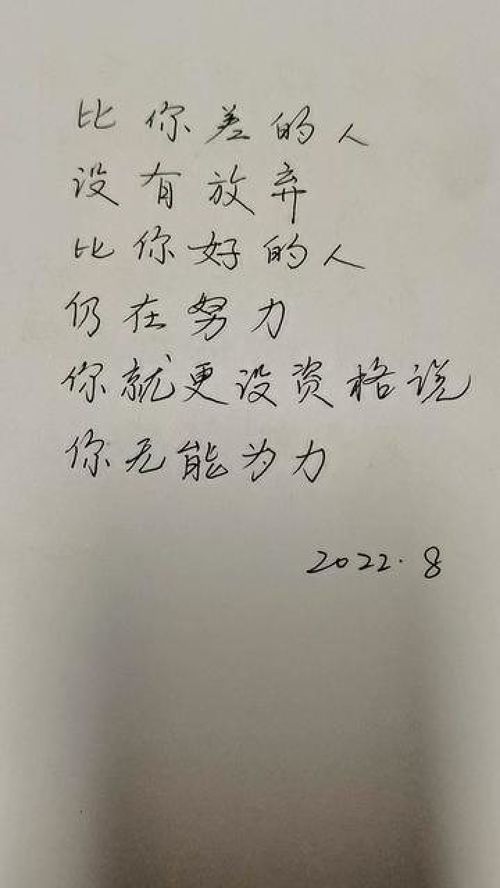 比你差的人
没有放弃
比你好的人
仍在努力
你就更没资格说
你无能为力
2022.8